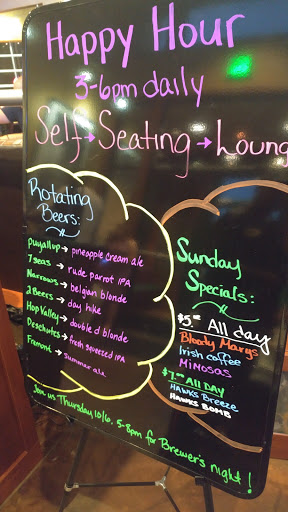 Happy Hour
3-6pm daily
Self → Seating → Loung
Rotating
Beers:
Puyallup → pineapple cream ale
7 Seas → rude parrot IPA
Narrows → belgian blonde
2 Beers → day hike
Hop Valley → double d blonde
Deschutes → fresh squeezed IPA
Fremont → summer ale
Sunday
Specials:
$5.00 All day
Bloody Marys
Irish coffee
Mimosas
$7.00 All Day
Hawks Breeze
Hawks Bomb
Join us Thursday 10/6, 5-8pm for Brewer's night!